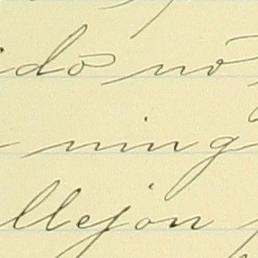 ido no
ning
llejon